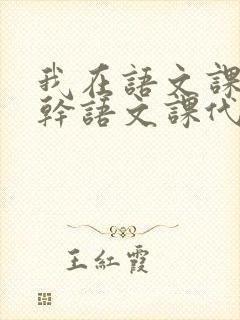 我在語文課
幹語文課代
王紅霞